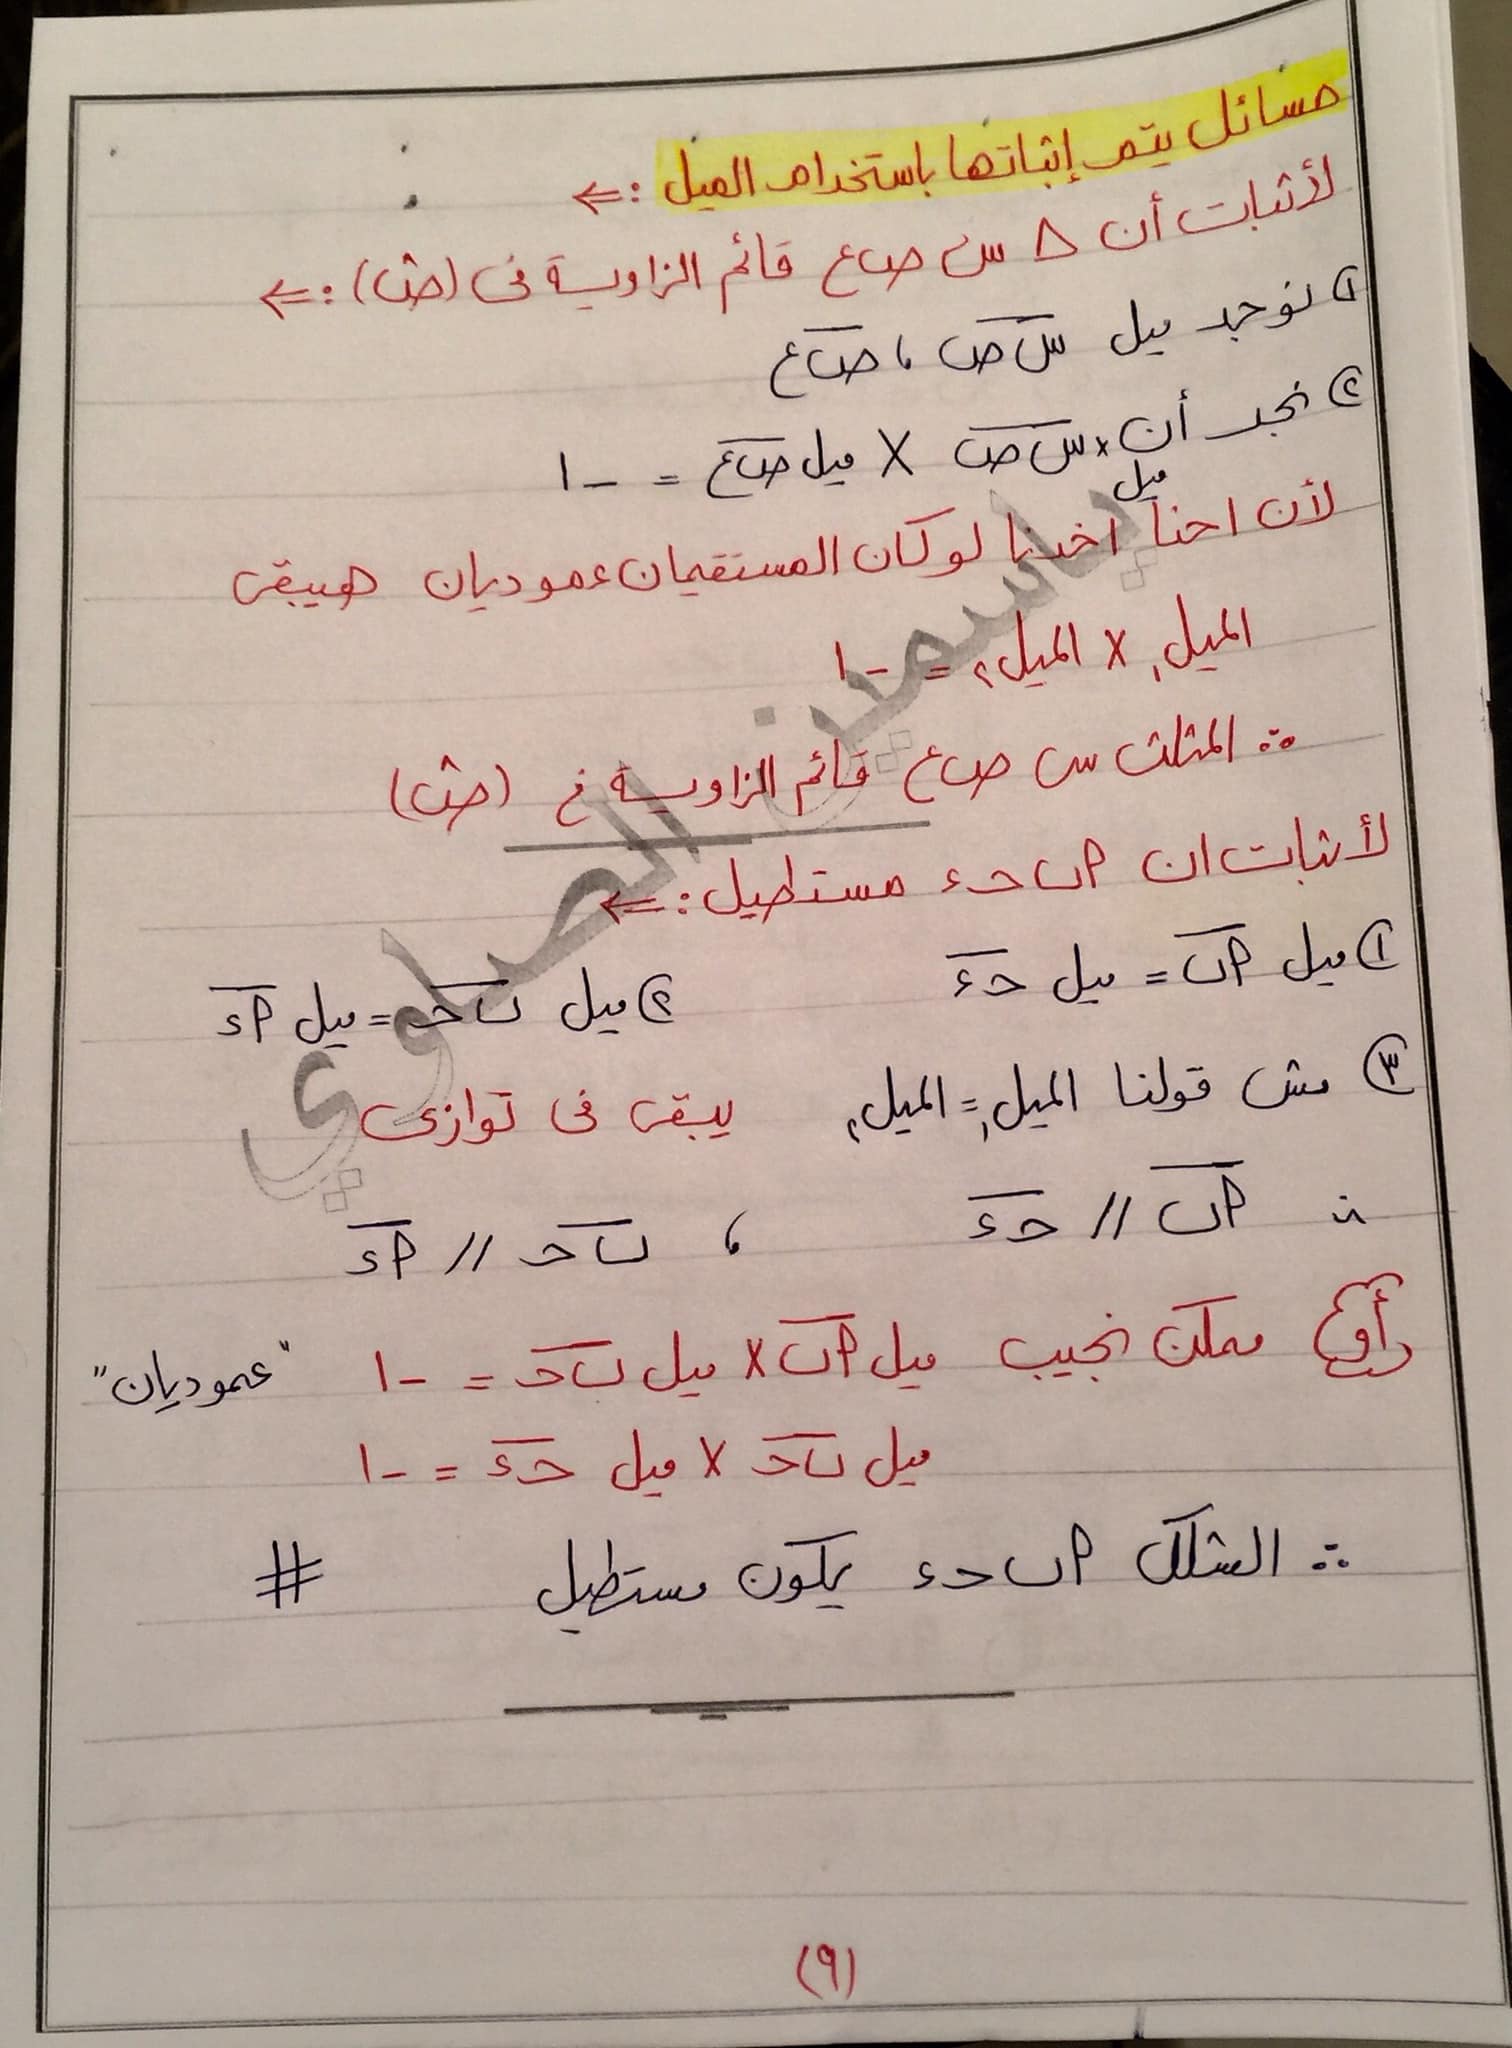 مسائل يتم إثباتها باستخدام الميل :⇐
لأثبات أن △ س ص ع قائم الزاوية فى (ص) :⇐
① نوجد ميل س ص ، ص ع
② نجد أن ميل س ص × ميل ص ع = -١
لأن احنا اخدنا لو كان المستقيمان عموديان هيبقى
الميل₁ × الميل₂ = -١
∴ المثلث س ص ع قائم الزاوية في (ص)
لأثبات ان P ب ح ء مستطيل :⇐
① ميل P ب = ميل ح ء
② ميل ب ح = ميل P ء
③ مش قولنا الميل₁ = الميل₂ يبقى فى توازى
∴ P ب // ح ء ، ب ح // P ء
(أو) ممكن نجيب ميل P ب × ميل ب ح = -١ "عموديان"
ميل ب ح × ميل ح ء = -١
∴ الشكل P ب ح ء يكون مستطيل #
(٩)
ياسمين الصاوي